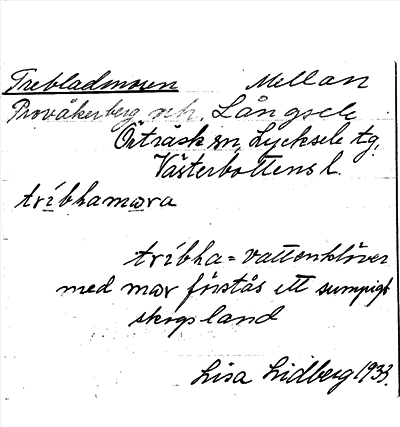 Trebladmoren Mellan
Provåkerberg och Långsele
Örträsk sn, Lycksele tg.
Västerbottens l.
tríbhamara
tríbha = vattenklöver
med mar förstås ett sumpigt
skogsland
Lisa Lidberg 1933.